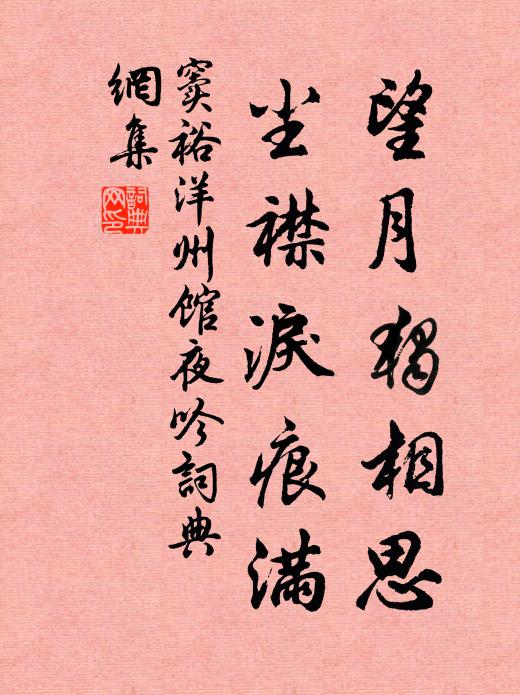 望月独相思
尘襟淚痕满
窦裕洋州館夜吟詞典
網集
詞典
网印